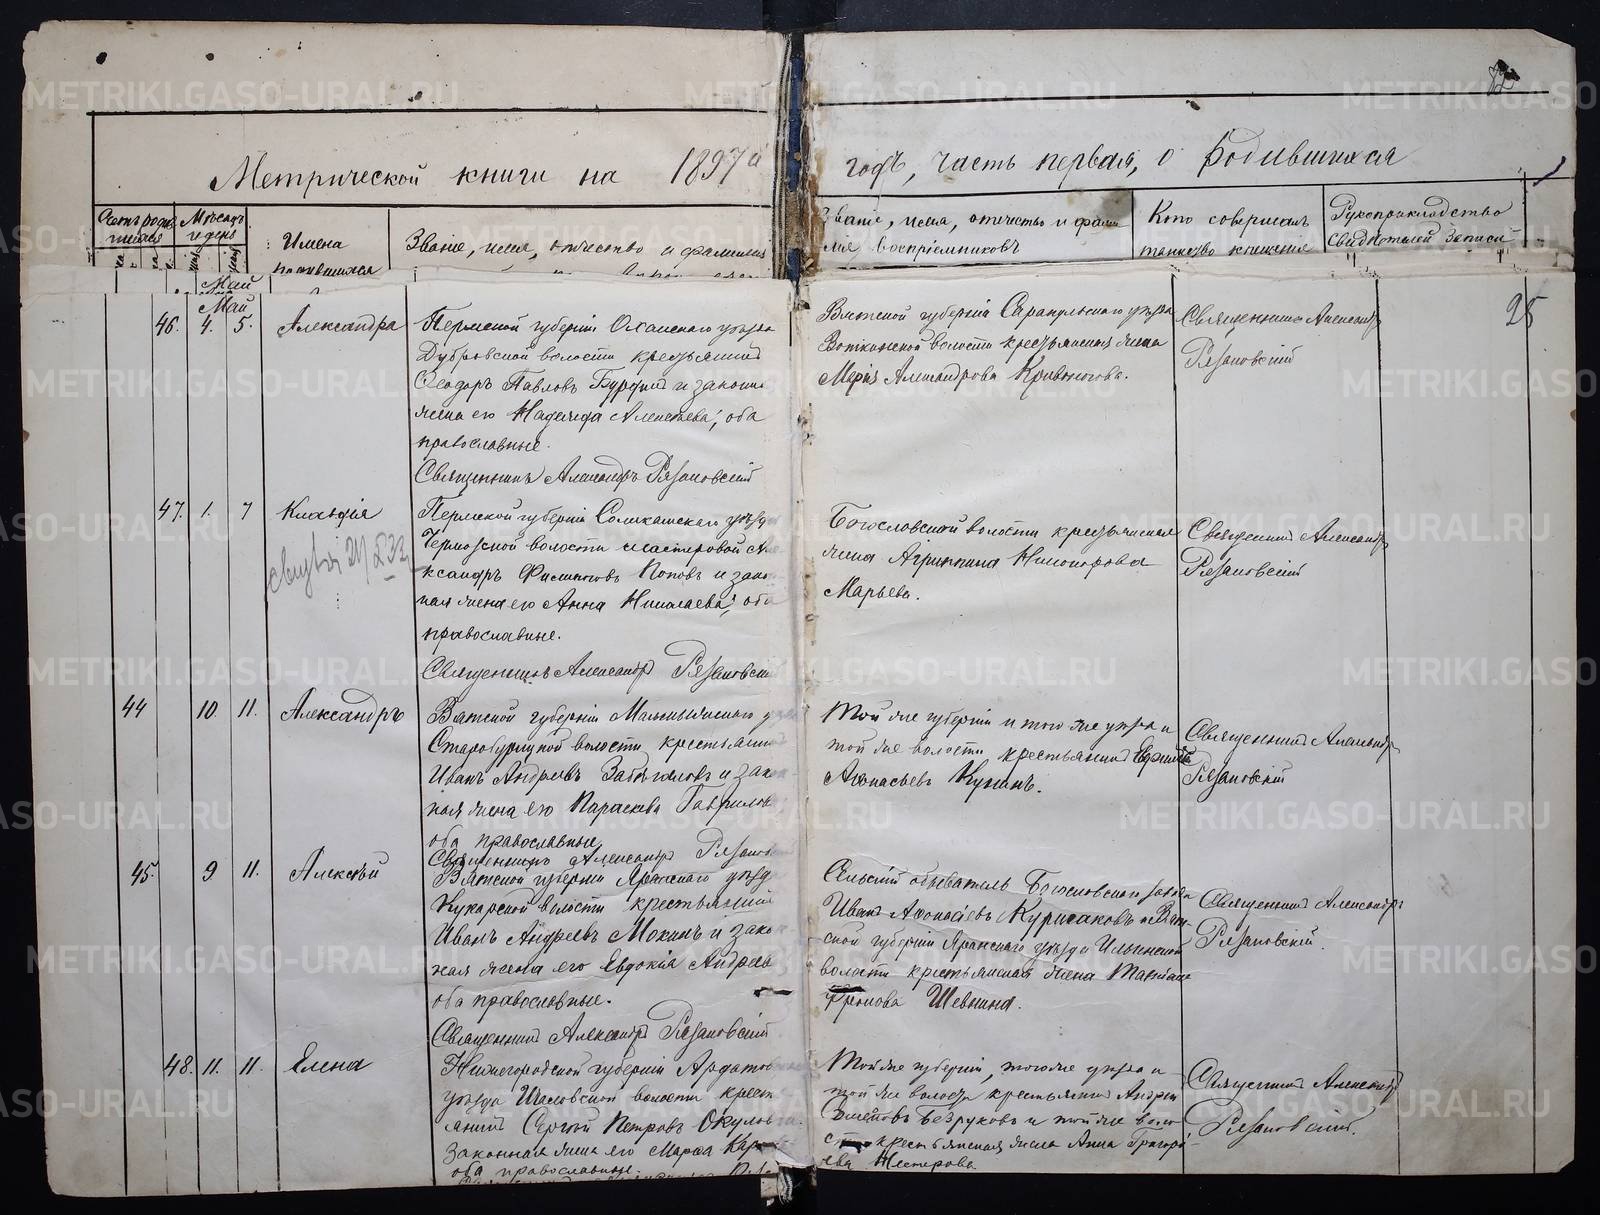 Метрической книги на 1897й
годъ, часть первая, о родившихся
Счетъ родив
шихся
Мѣсяцъ
и день
Имена
родившихся
Званіе, имя, отчество и фамилия
Званіе, имя, отчество и фами
лия воспріемниковъ
Кто совершалъ
таинство крещения
Рукоприкладство
свидѣтелей записи
Май
Май
46. 4. 5. Александра
Пермской губерніи Оханскаго уѣзда
Дубровской волости крестьянинъ
Ѳеодоръ Павловъ и законн
жена его Надежда Алексѣева, оба
православные.
Священникъ Александръ Рязановскій
Вятской губерніи Сарапульскаго уѣзда
Воткинской волости крестьянская жена
Марія Александрова Кривоногова.
Священникъ Александръ
Рязановскій
25
47. 1. 7 Клавдія
Пермской губерніи Соликамскаго уѣзда
Чермозской волости мастеровой Але
ксандръ Филипповъ Поповъ и закон
ная жена его Анна Николаева, оба
православные.
Священникъ Александръ Рязановскій
Богословской волости крестьянская
жена Агриппина Никифорова
Марьева.
Священникъ Александръ
Рязановскій
44 10. 11. Александръ
Вятской губерніи Малмыжскаго уѣзда
волости крестьянинъ
Иванъ Андреевъ и закон
ная жена его Параскева Гаврилова
оба православные
Священникъ Александръ Рязановск
Той же губерніи и того же уѣзда и
той же волости крестьянинъ
Аѳонасьевъ
Священникъ Александръ
Рязановскій
45. 9 11. Алексѣй
Вятской губерніи Яранскаго уѣзда
Кукарской волости крестьянинъ
Иванъ Андреевъ Мокинъ и закон
ная жена его Евдокія Андреева
оба православные.
Священникъ Александръ Рязановскій
Сельскій обыватель Богословскаго завода
Иванъ Аѳонасіевъ и Вят
ской губерніи Яранскаго уѣзда Ильинской
волости крестьянская жена
Шевнина.
Священникъ Александръ
Рязановскій.
48. 11. 11. Елена
Нижегородской губерніи Ардатов
уѣзда волости крест
янинъ Сергѣй Петровъ Окулов
законная жена его Марѳа
оба православные.
Той же губерніи, того же уѣзда и
той же волости крестьянинъ Андрей
Безруковъ и той же воло
сти крестьянская жена Анна Григорі
ева Нестерова.
Священникъ Александръ
Рязановскій.
METRIKI.GASO-URAL.RU